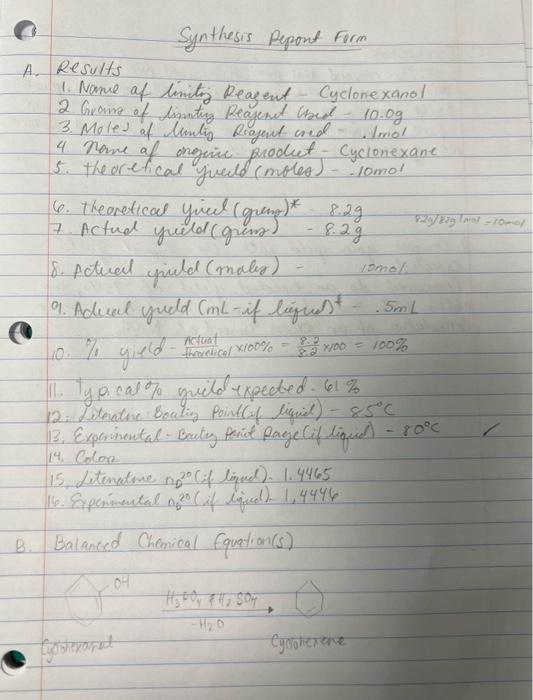 Synthesis Report Form
A. Results
1. Name of limiting Reagent - Cyclonexanol
2 Grams of limiting Reagent Used - 10.0g
3. Moles of limiting Reagent used - .1mol
4. Name of organic product - Cyclonexane
5. theoretical yield (moles) - .10mol
6. theoretical yield (grams)* - 8.2g
7. Actual yield (grams) - 8.2g
8.2g/82g/mol = 10mol
8. Actual yield (moles) - 10mol
9. Actual yield (mL - if liquid)* - .5mL
10. % yield - Actual/theoretical x100% = 8.2/8.2 x100 = 100%
11. Typical % yield expected - 61%
12. Literature - Boiling Point (if liquid) - 85°C
13. Experimental - Boiling Point Range (if liquid) - 80°C
14. Color
15. Literature nD20 (if liquid) - 1.4465
16. Experimental nD20 (if liquid) - 1,4446
B. Balanced Chemical Equation(s)
OH
H3PO4 & H2SO4
-H2O
Cyclohexanol
Cyclohexene